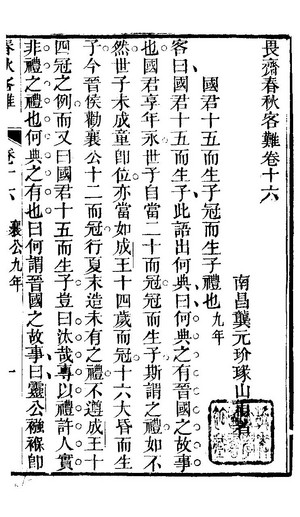 畏齋春秋客難卷十六
南昌龔元玠琢山
國君十五而生子冠而生子禮也九年
客曰國君十五而生子此語出何典曰何典之有晉國之故事
也國君享年永世子自當二十而冠而生子斯謂之禮如不
然世子未成童卽位亦當如成王十四歲而冠十六大昏而生
子今晉侯勸襄公十二而冠行夏末造未有之禮不遵成王十
四冠之例而又曰國君十五而生子豈曰汰哉專以禮許人實
非禮之禮也何典之有也曰何謂晉國之故事曰靈公襁褓卽
春秋客難
卷十六
襄公九年
一